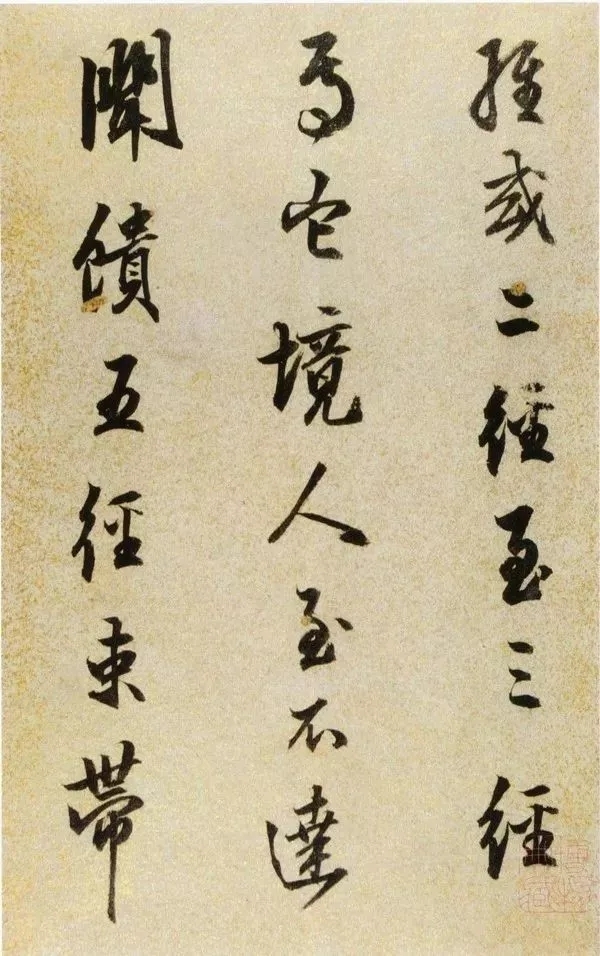 或二經至三經
焉它境人至不達
饋五經束帶